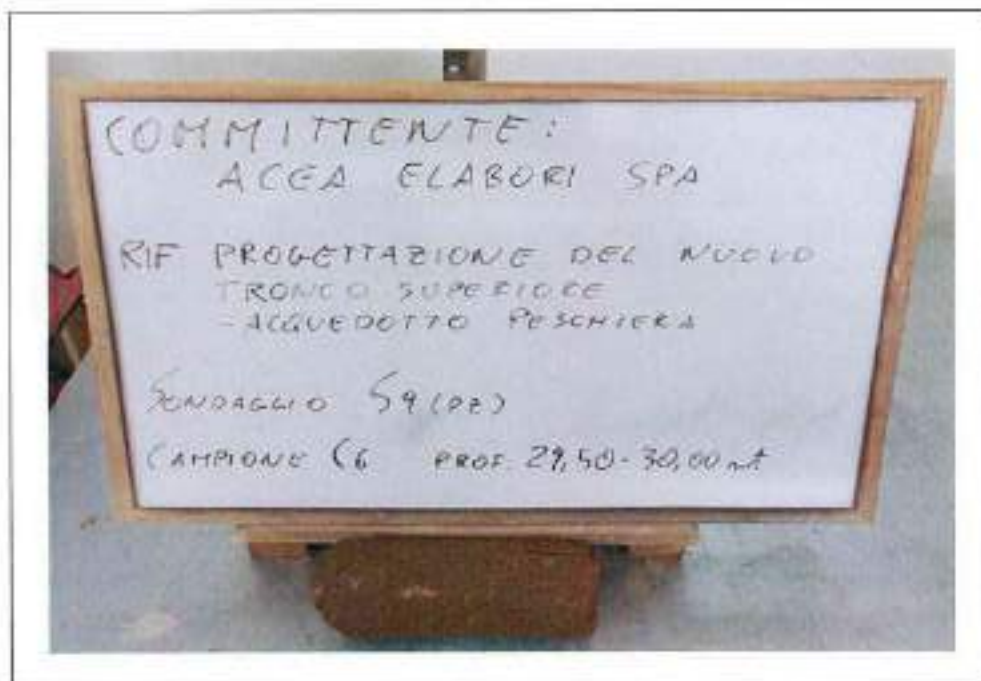 COMMITTENTE:
ACEA ELABORI SPA
RIF PROGETTAZIONE DEL NUOVO
TRONCO SUPERIORE
- ACQUEDOTTO PESCHIERA
SONDAGGIO S9 (PZ)
CAMPIONE C6 PROF. 29,50-30,00 mt